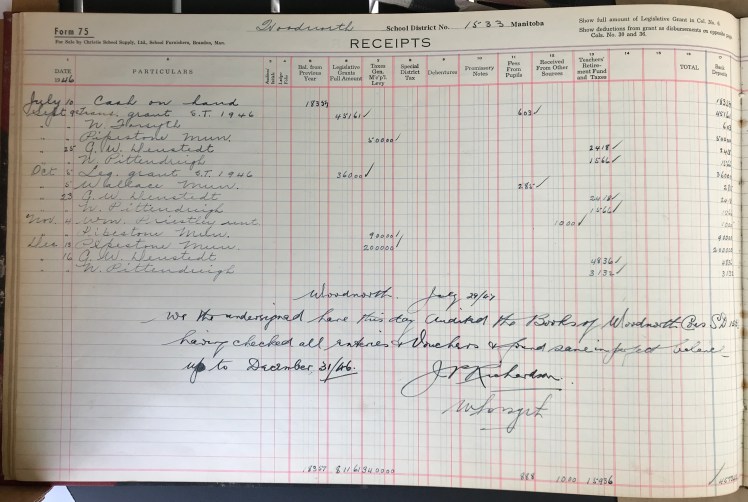 Form 75
For Sale by Christie School Supply, Ltd., School Furnishers, Brandon, Man.
Woodnorth School District No. 1533 Manitoba
Show full amount of Legislative Grant in Col. No. 6
Show deductions from grant as disbursements on opposite page
Cols. No. 26 and 36.
RECEIPTS
DATE 1946 PARTICULARS Bal. from Previous Year Legislative Grants Full Amount Taxes Gen. M'c'p'l. Levy Special District Tax Debentures Promissory Notes Fees From Pupils Received From Other Sources Teachers' Retirement Fund and Taxes TOTAL Bank Deposits
July 10 Cash on hand 18357 18357
Sept 9 Trans. grant S.T. 1946 45161 ✓ 45161
" " N. Forsyth 603 ✓ 603
" " Pipestone Mun. 50000 ✓ 50000
" 25 G. W. Denstedt 2418 ✓ 2418
" " N. Pittendreigh 1566 ✓ 1566
Oct 5 Leg. grant S.T. 1946 36000 ✓ 36000
" 5 Wallace Mun. 285 ✓ 285
" 23 G. W. Denstedt 2418 ✓ 2418
" " N. Pittendreigh 1566 ✓ 1566
Nov. 4 Wm. Priestley rent 1000 ✓ 1000
" " Pipestone Mun. 90000 ✓ 90000
Dec 13 Pipestone Mun. 200000 ✓
" 16 G. W. Denstedt 4836 ✓ 4836
" " N. Pittendreigh 3132 ✓ 3132
Woodnorth, July 29/47
We the undersigned have this day audited the Books of Woodnorth Cons S.D.
having checked all entries & Vouchers & found same in perfect balance
up to December, 31/46.
J P Richardson.
W Forsyth
18357 81161 340000 888 1000 15936